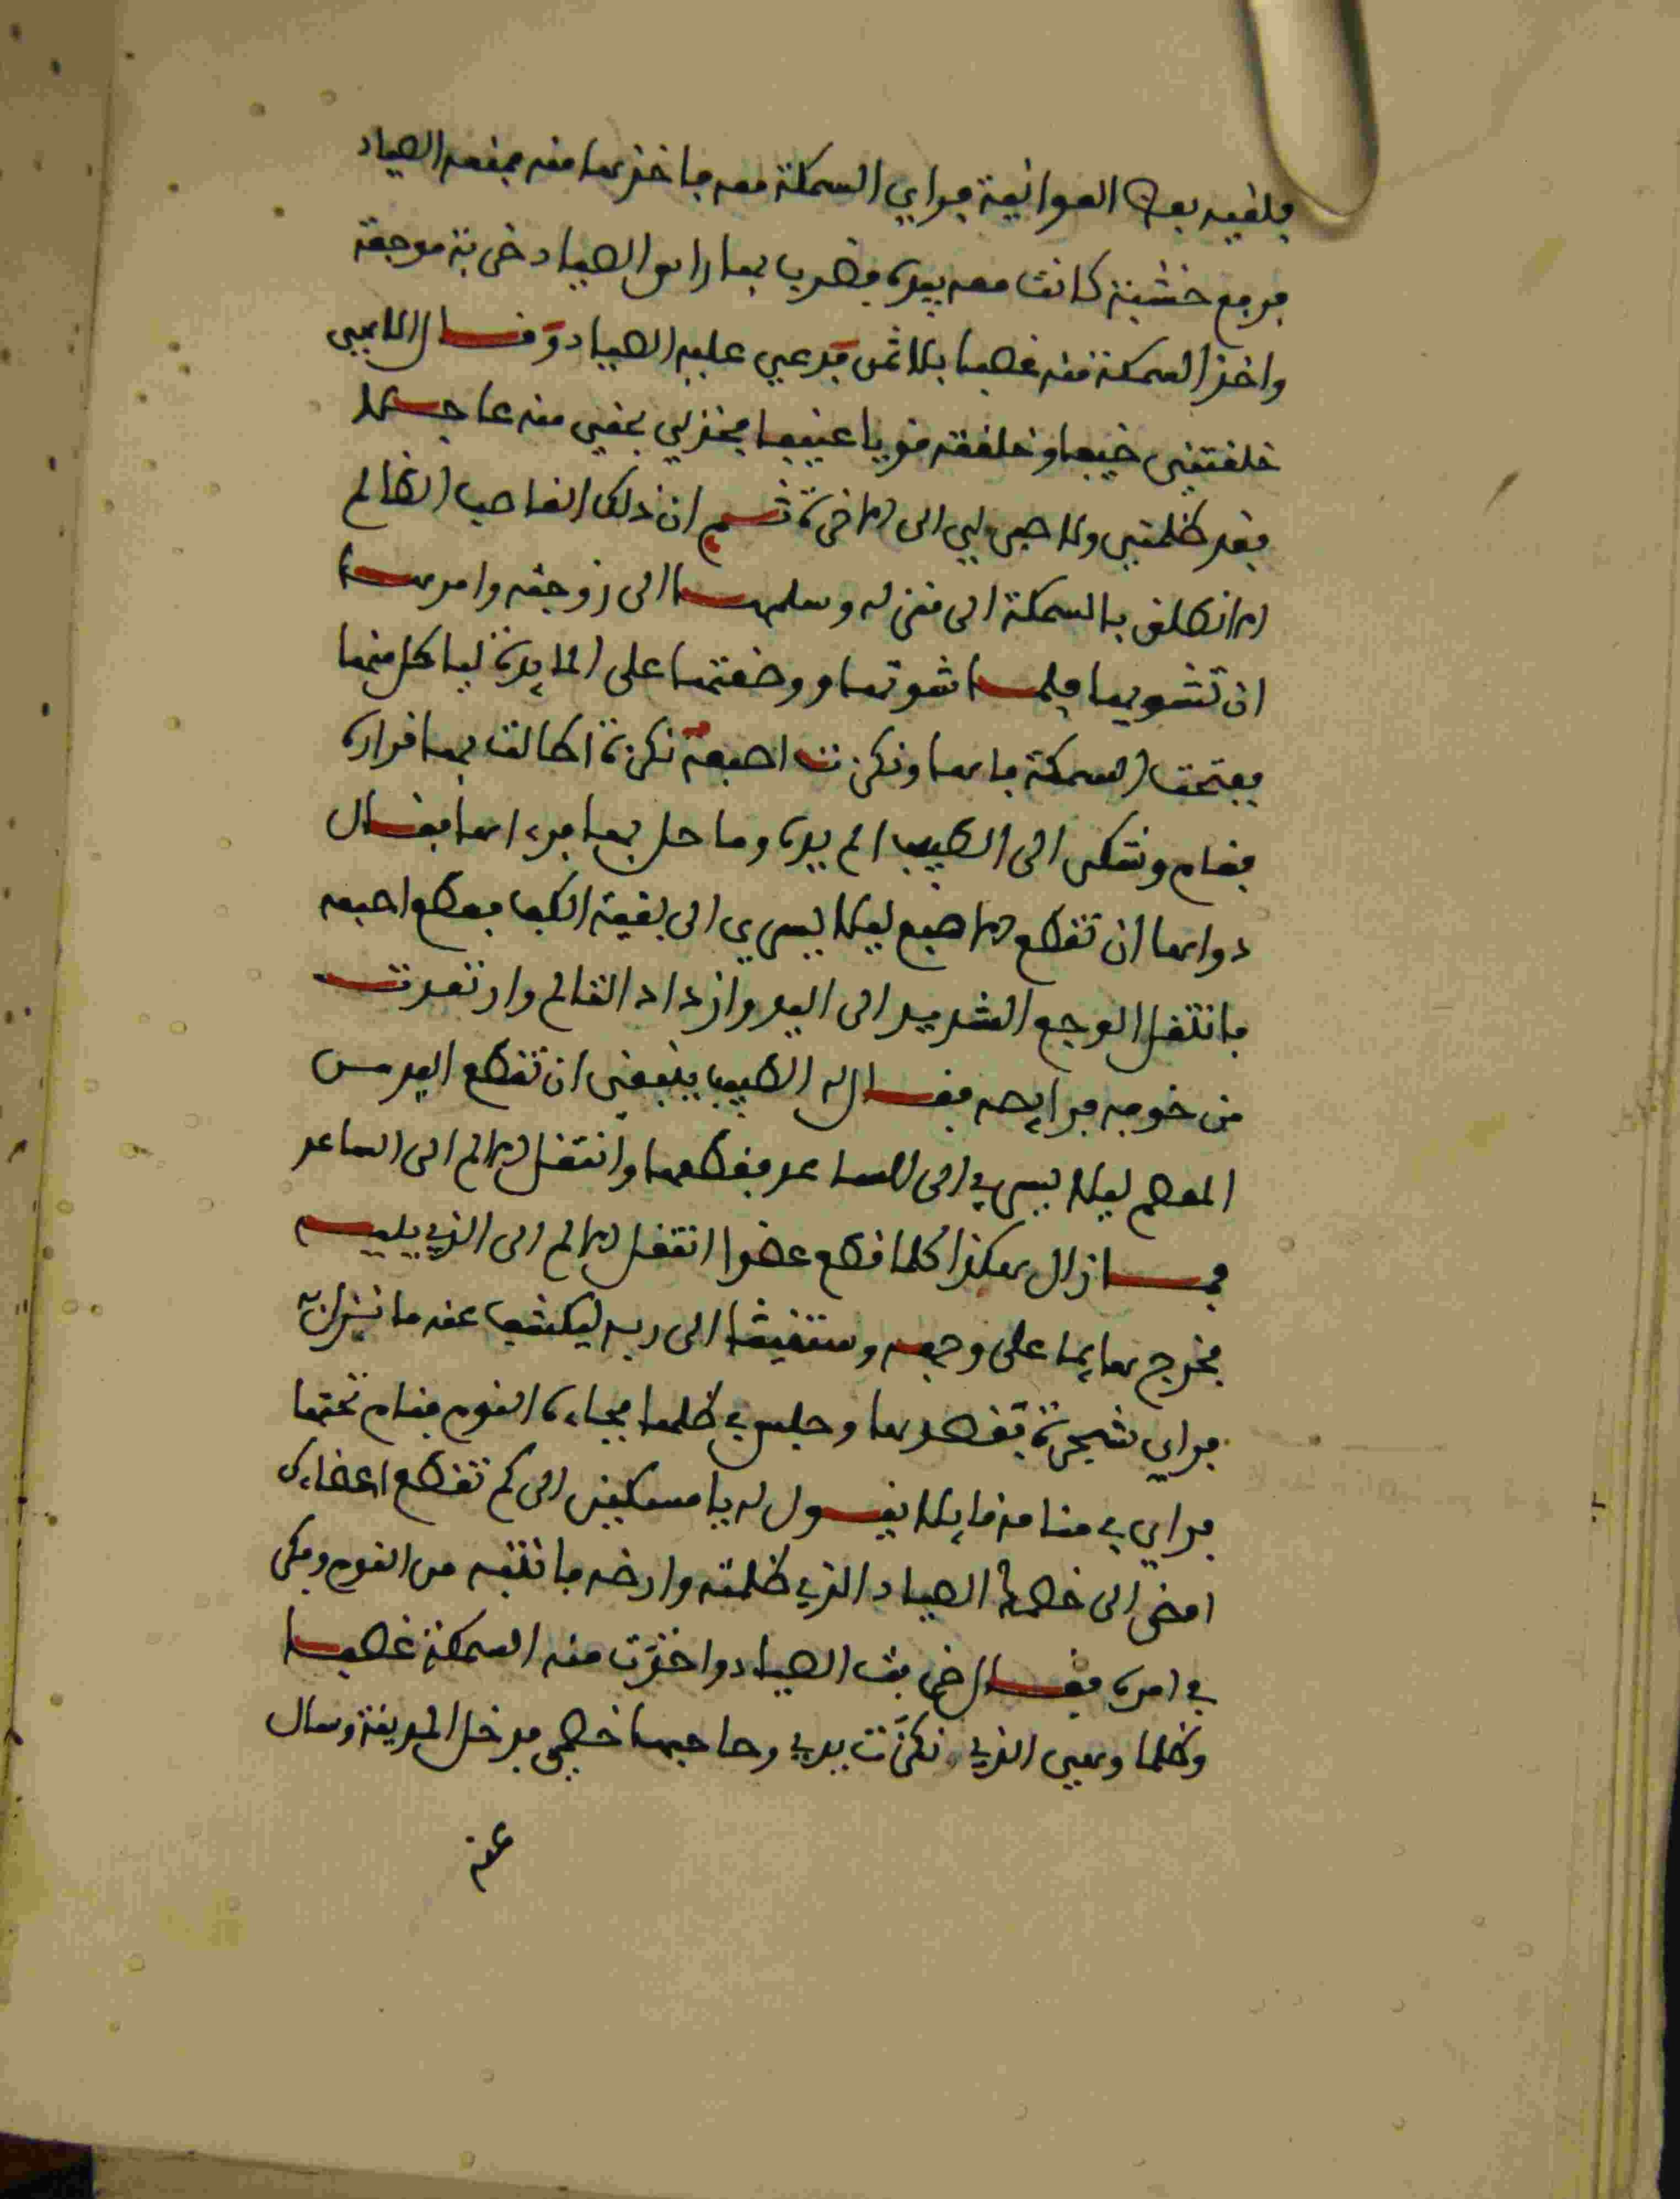 فلقيه بعض العوانية فراي السمكة معه فاخذها منه فمنعه الصياد
فرفع خشبة كانت معه بيده فضرب بها راس الصياد ضربة موجعة
واخذ السمكة منه غصبا بلا ثمن فدعي عليه الصياد وقال الاهي
خلقتني ضيعفا وخلقته قويا عنيفا فخذ لي بحقي منه عاجلا
فقد ظلمني ولا صبر لي الى الاخرة ثم ان ذلك الغاصب الظالم
انطلق بالسمكة الى منزله وسلمها الى زوجته وامرها
ان تشويها فلما شوتها ووضعتها على المايدة لياكل منها
ففتحت السمكة فاها ونكزت اصبعه نكزة اطالت بها قراره
فقام وشكى الى الطبيب الم يده وما حل بها فرءاها فقال
دواها ان تقطع الاصبع ليلا يسري الى بقية الكف فقطع اصبعه
فانتقل الوجع الشديد الى اليد وازداد التالم وارتعدت
من خوفه فرايصه فقال له الطبيب ينبغي ان تقطع اليد من
المعصم ليلا يسري الى الساعد فقطعها وانتقل الالم الى الساعد
فما زال هكذا كلما قطع عضوا انتقل الالم الى الذي يليه
فخرج هايما على وجهه ومستغيثا الى ربه ليكشف عنه ما نزل به
فراي شجرة فقصدها وجلس في ظلها فجاءه النوم فنام تحتها
فراي في منامه قايلا يقول له يا مسكين الى كم تقطع اعضاءك
امضي الى خصمك الصياد الذي ظلمته وارضه فانتبه من النوم وفكر
في امره فقال ضربت الصياد واخذت منه السمكة غصبا
وظلما وهي الذي نكزت يدي وصاحبها خصمي فدخل المدينة وسال
عنه